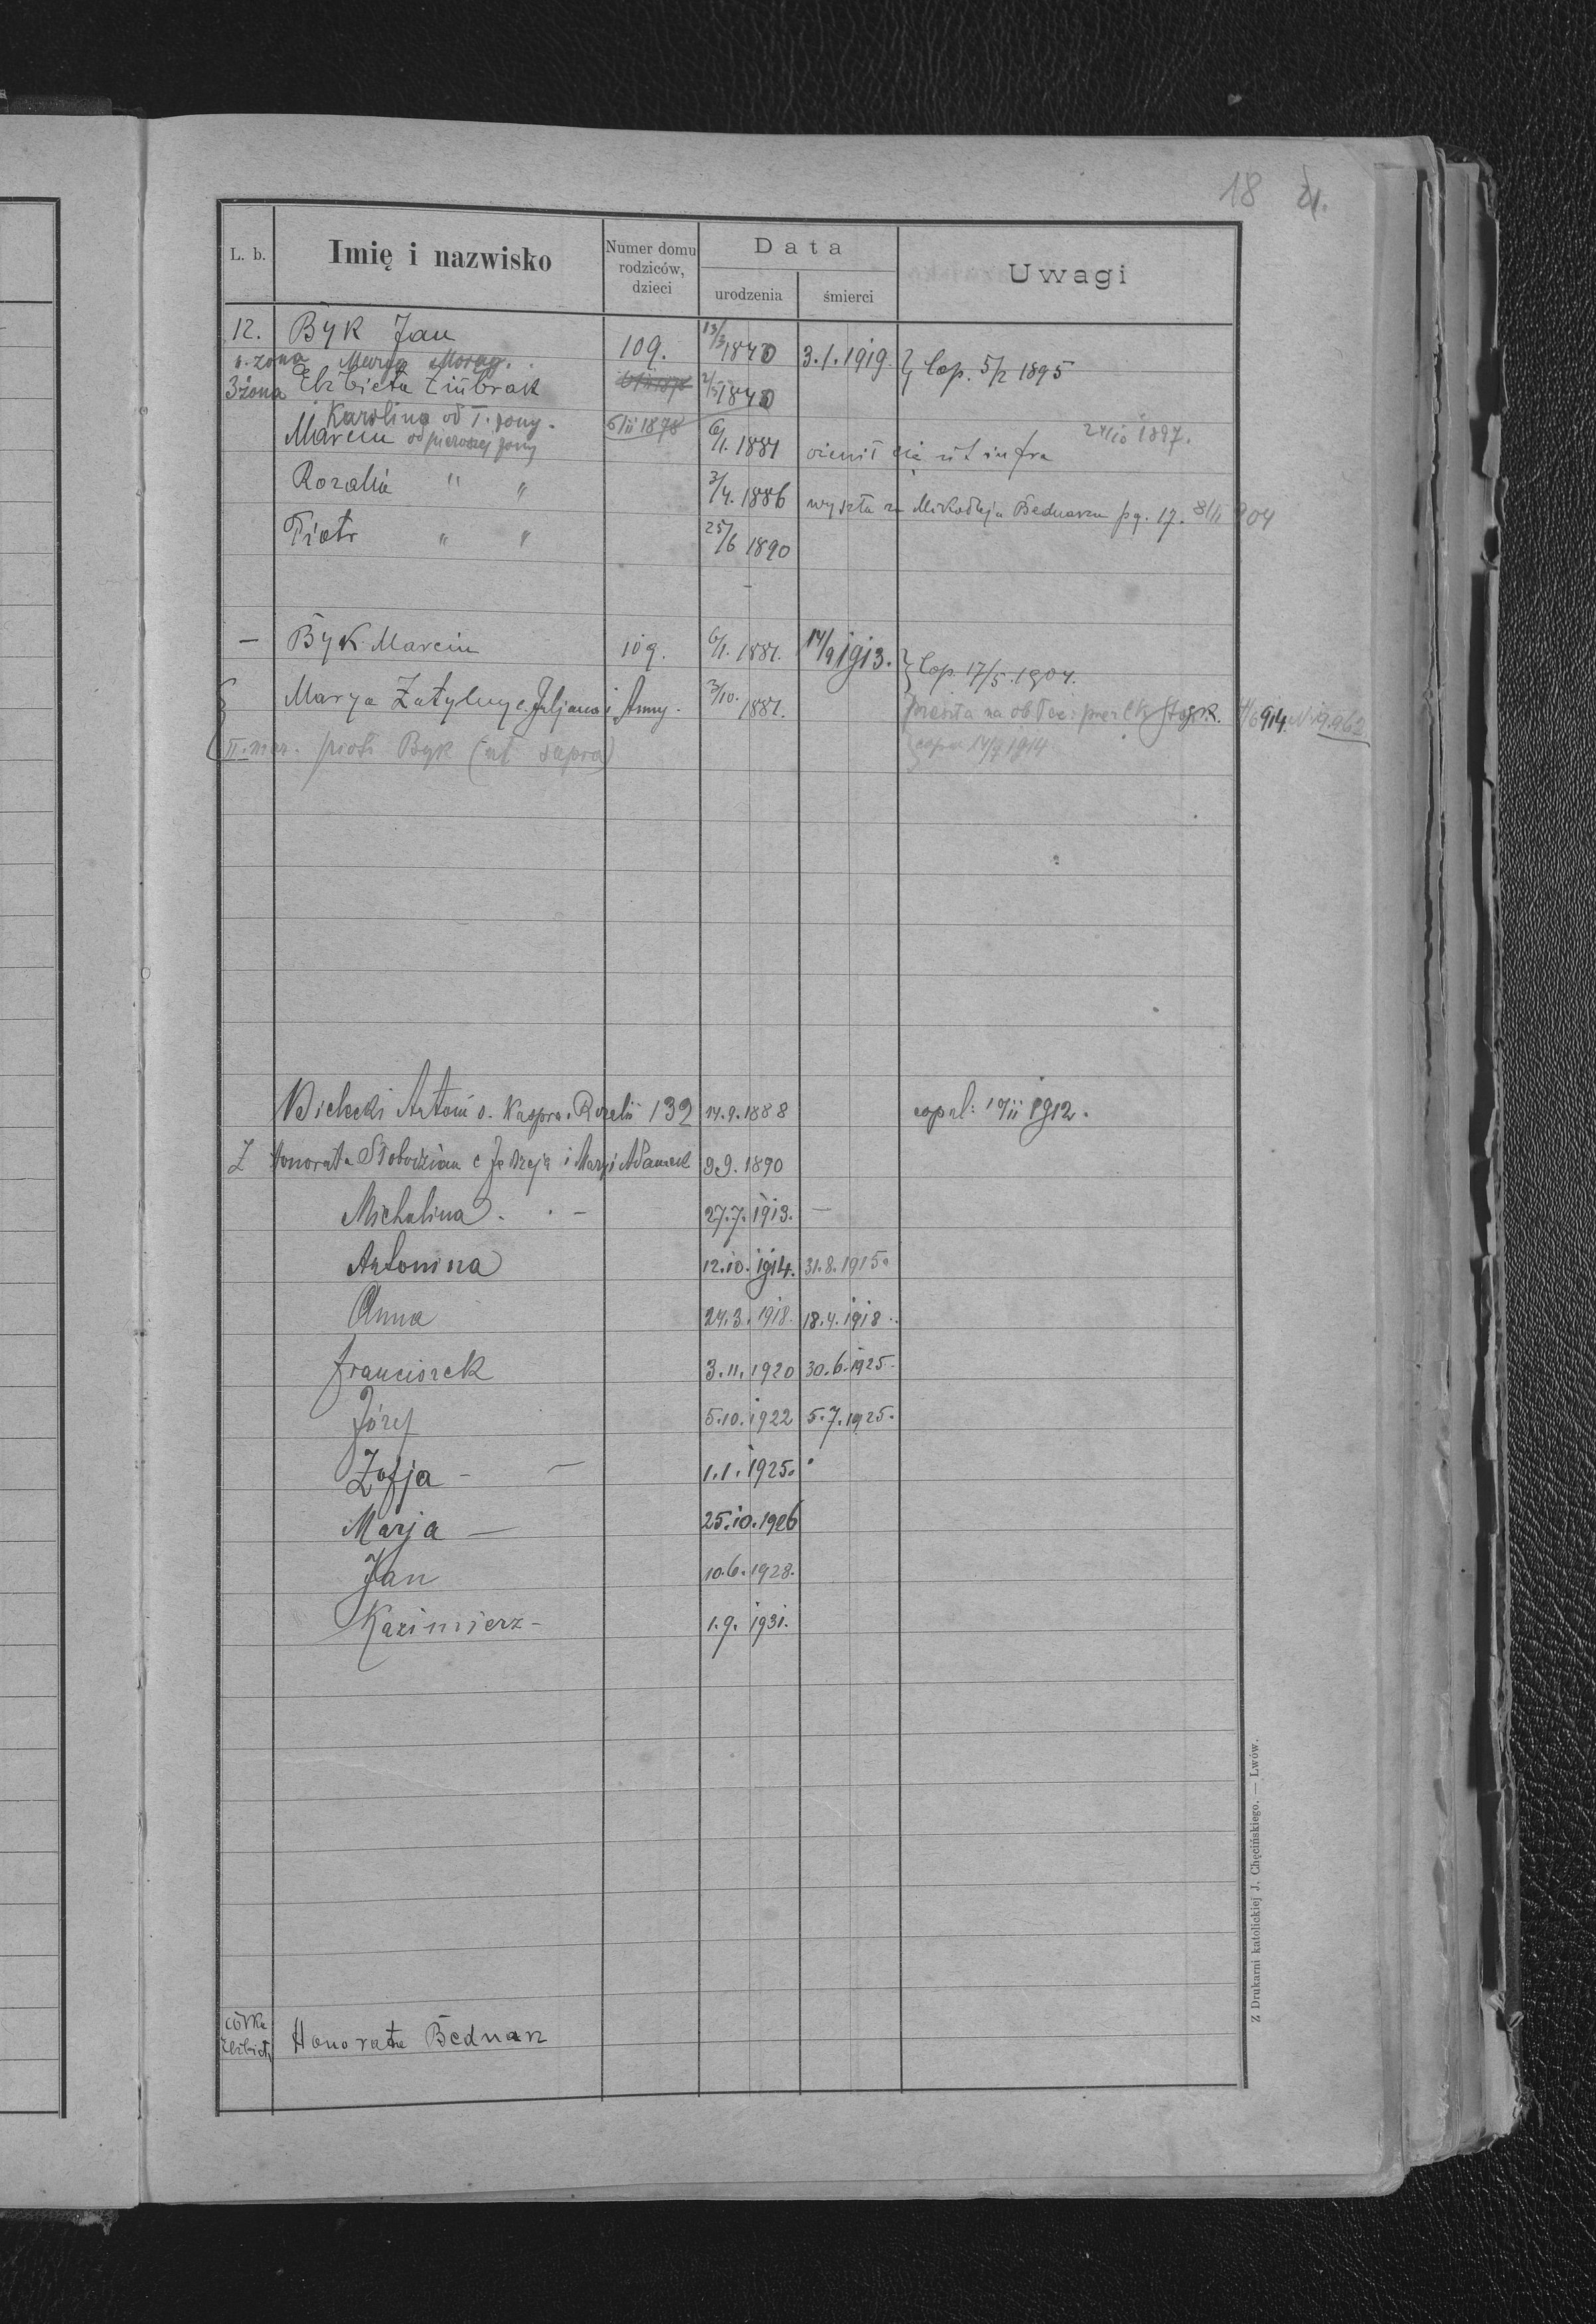 18 21.
L. b. Imię i nazwisko Numer domu rodziców, dzieci Data urodzenia śmierci Uwagi
12. Byk Jan 109. 13/3 1840 3.1.1919. } Cop. 5/2 1895
żona Marya
3 żona Elżbieta 2/5 1840
Karolina od I. żony. 6/11 1878 24/10 1897.
Marcin od pierwszej żony 6/1. 1881 ożenił się ut infra
Rozalia " " 3/4. 1886 wyszła za Mikołaja Bednarza pg. 17. 8/11 904
Piotr " " 25/6 1890
–
— Byk Marcin 109. 6/1. 1881. 14/9 1913. } Cop. 17/5. 1904.
Marya Zatylny c. Juljana i Anny. 3/10. 1881. przeszła na ob łac:
II. mar. piotr Byk (ut supra) copul 14/7 1914
Bielecki Antoni s. Kaspra i Rozalii 132 14.9.1888 copul: 19/11 1912.
Ż Honorata Słobodzian c Jędrzeja i Maryi Adamek 9.9.1890
Michalina. · – 27.7.1913. —
Antonina 12.10.1914. 31.8.1915.
Anna 24.3.1918. 18.4.1918.
Franciszek 3.11.1920 30.6.1925.
Józef 5.10.1922 5.7.1925.
Zofja – – 1.1.1925.
Marja — 25.10.1926
Jan 10.6.1928.
Kazimierz – 1.9.1931.
córka Elżbiety Honorata Bednarz
Z Drukarni katolickiej J. Chęcińskiego. — Lwów.